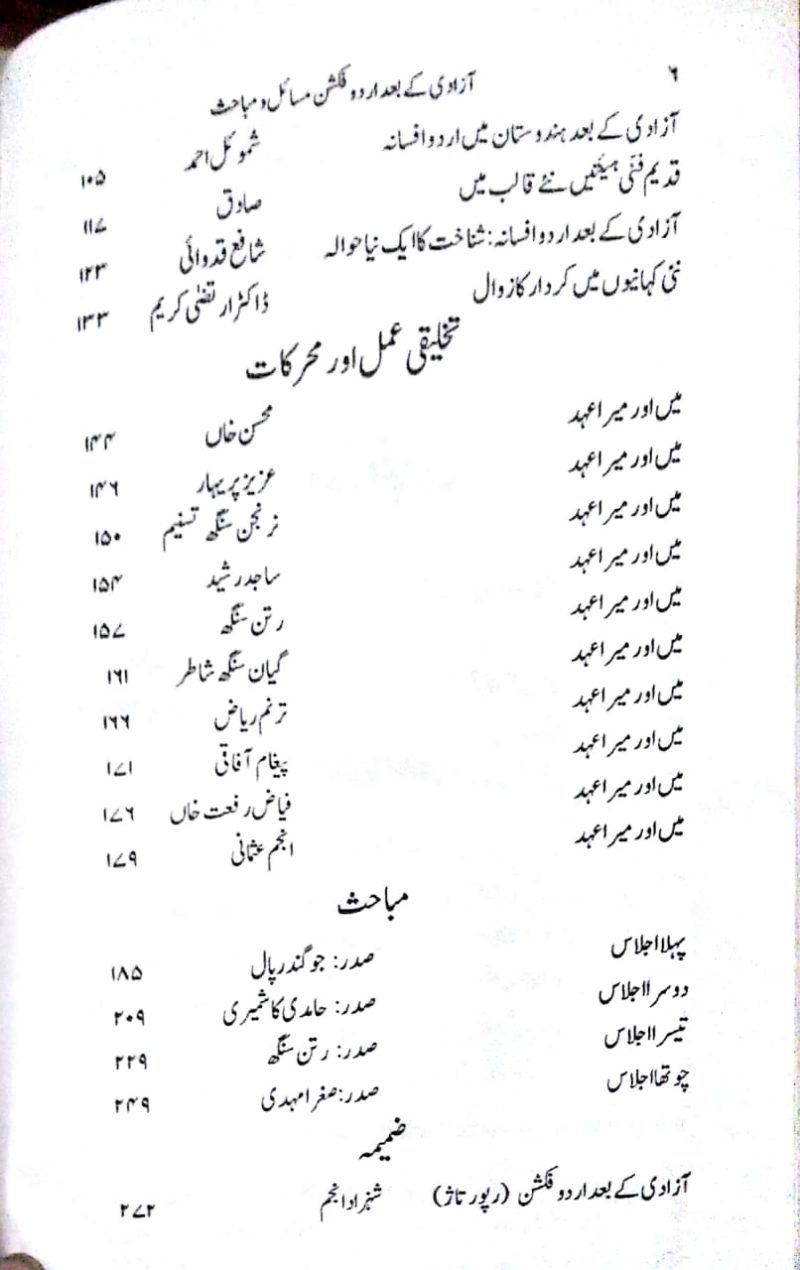 ۶ آزادی کے بعد اردو فکشن مسائل و مباحث
آزادی کے بعد ہندوستان میں اردو افسانہ شموئل احمد ۱۰۵
قدیم فنّی ہیئتیں نئے قالب میں صادق ۱۱۷
آزادی کے بعد اردو افسانہ: شناخت کا ایک نیا حوالہ شافع قدوائی ۱۲۳
نئی کہانیوں میں کردار کا زوال ڈاکٹر ارتضٰی کریم ۱۳۳
تخلیقی عمل اور محرکات
میں اور میرا عہد محسن خاں ۱۴۴
میں اور میرا عہد عزیز پریہار ۱۴۶
میں اور میرا عہد نرنجن سنگھ تسنیم ۱۵۰
میں اور میرا عہد ساجد رشید ۱۵۴
میں اور میرا عہد رتن سنگھ ۱۵۷
میں اور میرا عہد گیان سنگھ شاطر ۱۶۱
میں اور میرا عہد ترنم ریاض ۱۶۶
میں اور میرا عہد پیغام آفاقی ۱۷۱
میں اور میرا عہد فیاض رفعت خاں ۱۷۶
میں اور میرا عہد انجم عثمانی ۱۷۹
مباحث
پہلا اجلاس صدر: جوگندر پال ۱۸۵
دوسرا اجلاس صدر: حامدی کاشمیری ۲۰۹
تیسرا اجلاس صدر: رتن سنگھ ۲۲۹
چوتھا اجلاس صدر: صغرا مہدی ۲۴۹
ضمیمہ
آزادی کے بعد اردو فکشن (رپورتاژ) شہزاد انجم ۲۷۲